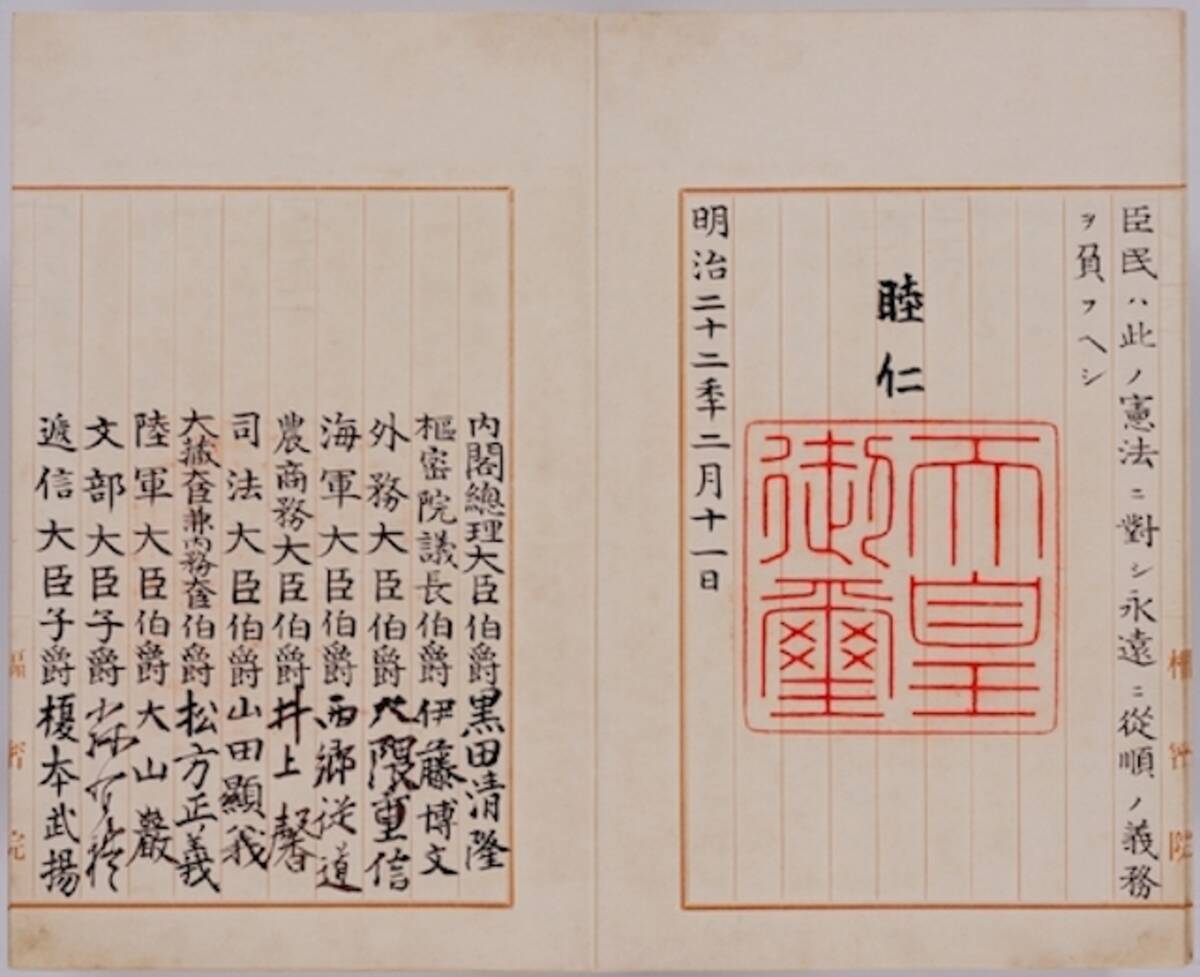 臣民ハ此ノ憲法ニ對シ永遠ニ從順ノ義務
ヲ負フヘシ
睦仁
天皇
御璽
明治二十二季二月十一日
內閣總理大臣伯爵黒田清隆
樞密院議長伯爵伊藤博文
外務大臣伯爵大隈重信
海軍大臣伯爵西郷從道
農商務大臣伯爵井上馨
司法大臣伯爵山田顯義
大藏大臣兼內務大臣伯爵松方正義
陸軍大臣伯爵大山巖
文部大臣子爵森有禮
遞信大臣子爵榎本武揚
樞密院